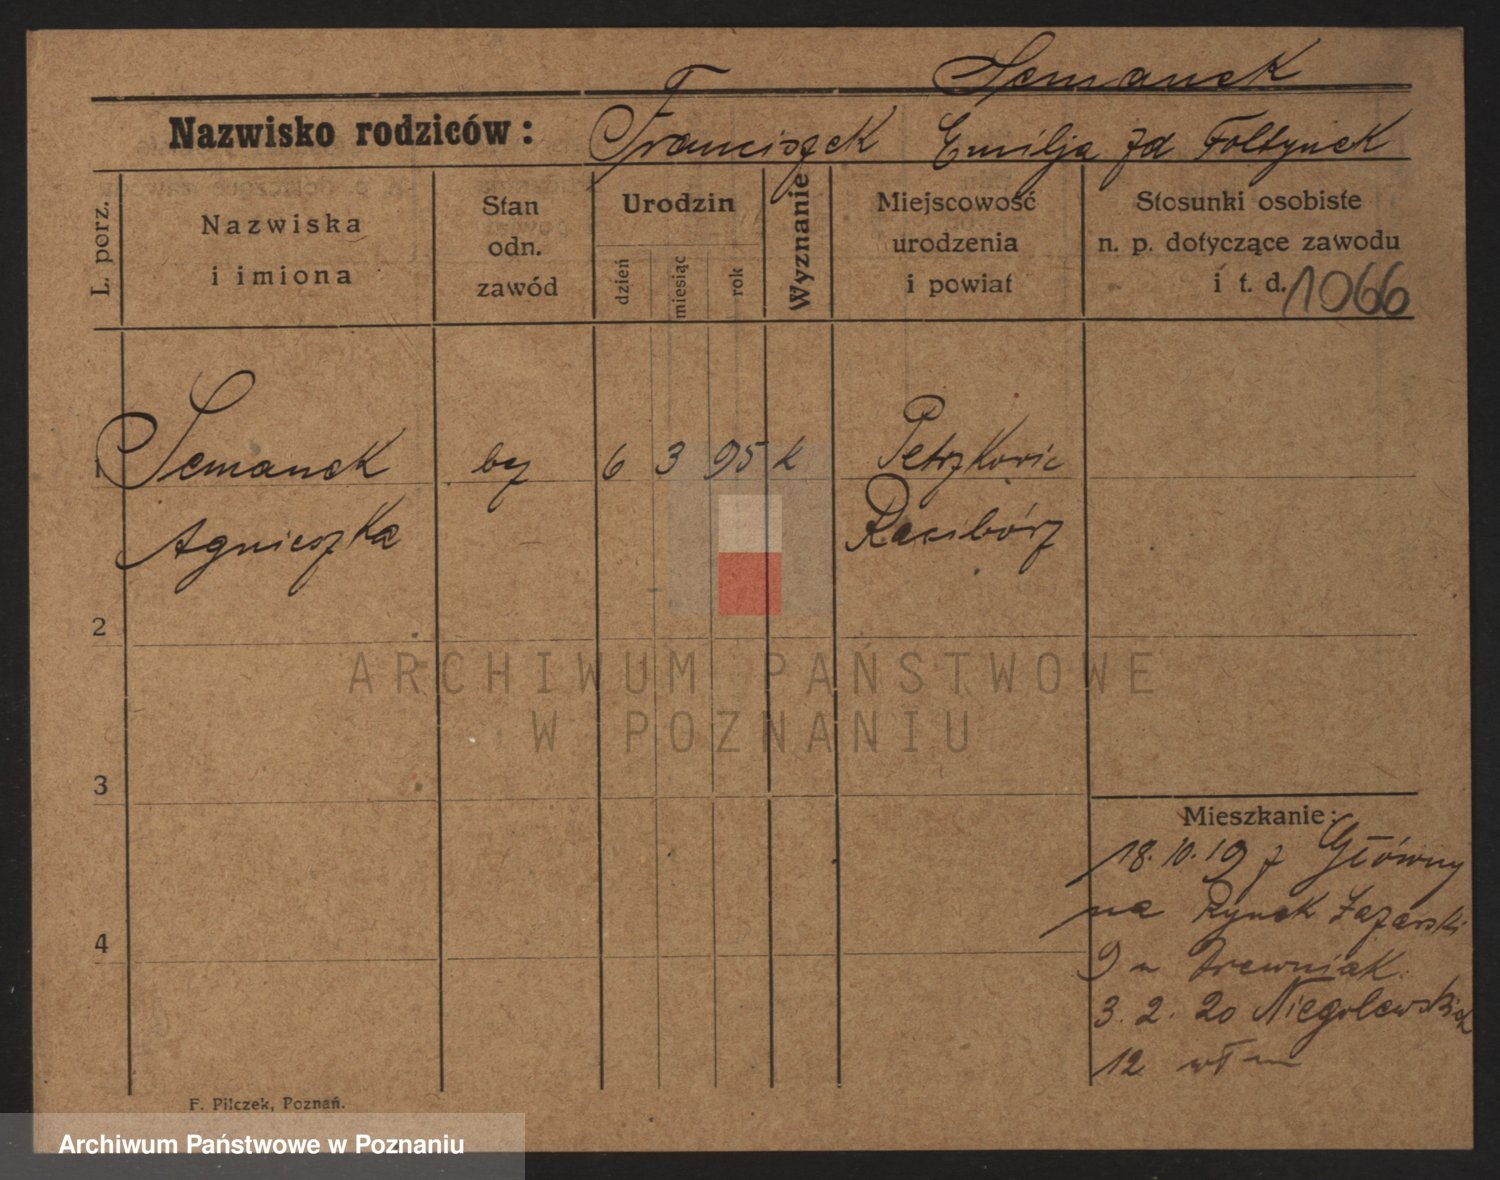 Semanek
Nazwisko rodziców: Franciszek Emilja zd Foltynek
L. porz.
Nazwiska
i imiona
Stan
odn.
zawód
Urodzin
dzień
miesiąc
rok
Wyznanie
Miejscowość
urodzenia
i powiat
Stosunki osobiste
n. p. dotyczące zawodu
i t. d.
1066
1 Semanek 6 3 95 k Petrzkovic
Agnieszka Racibórz
2
ARCHIWUM PAŃSTWOWE
W POZNANIU
3
Mieszkanie:
18.10.19 z Główny
na Rynek Łazarski
4
9 Drewniak
3. 2. 20 Niegolewskich
12
F. Pilczek, Poznań.
Archiwum Państwowe w Poznaniu